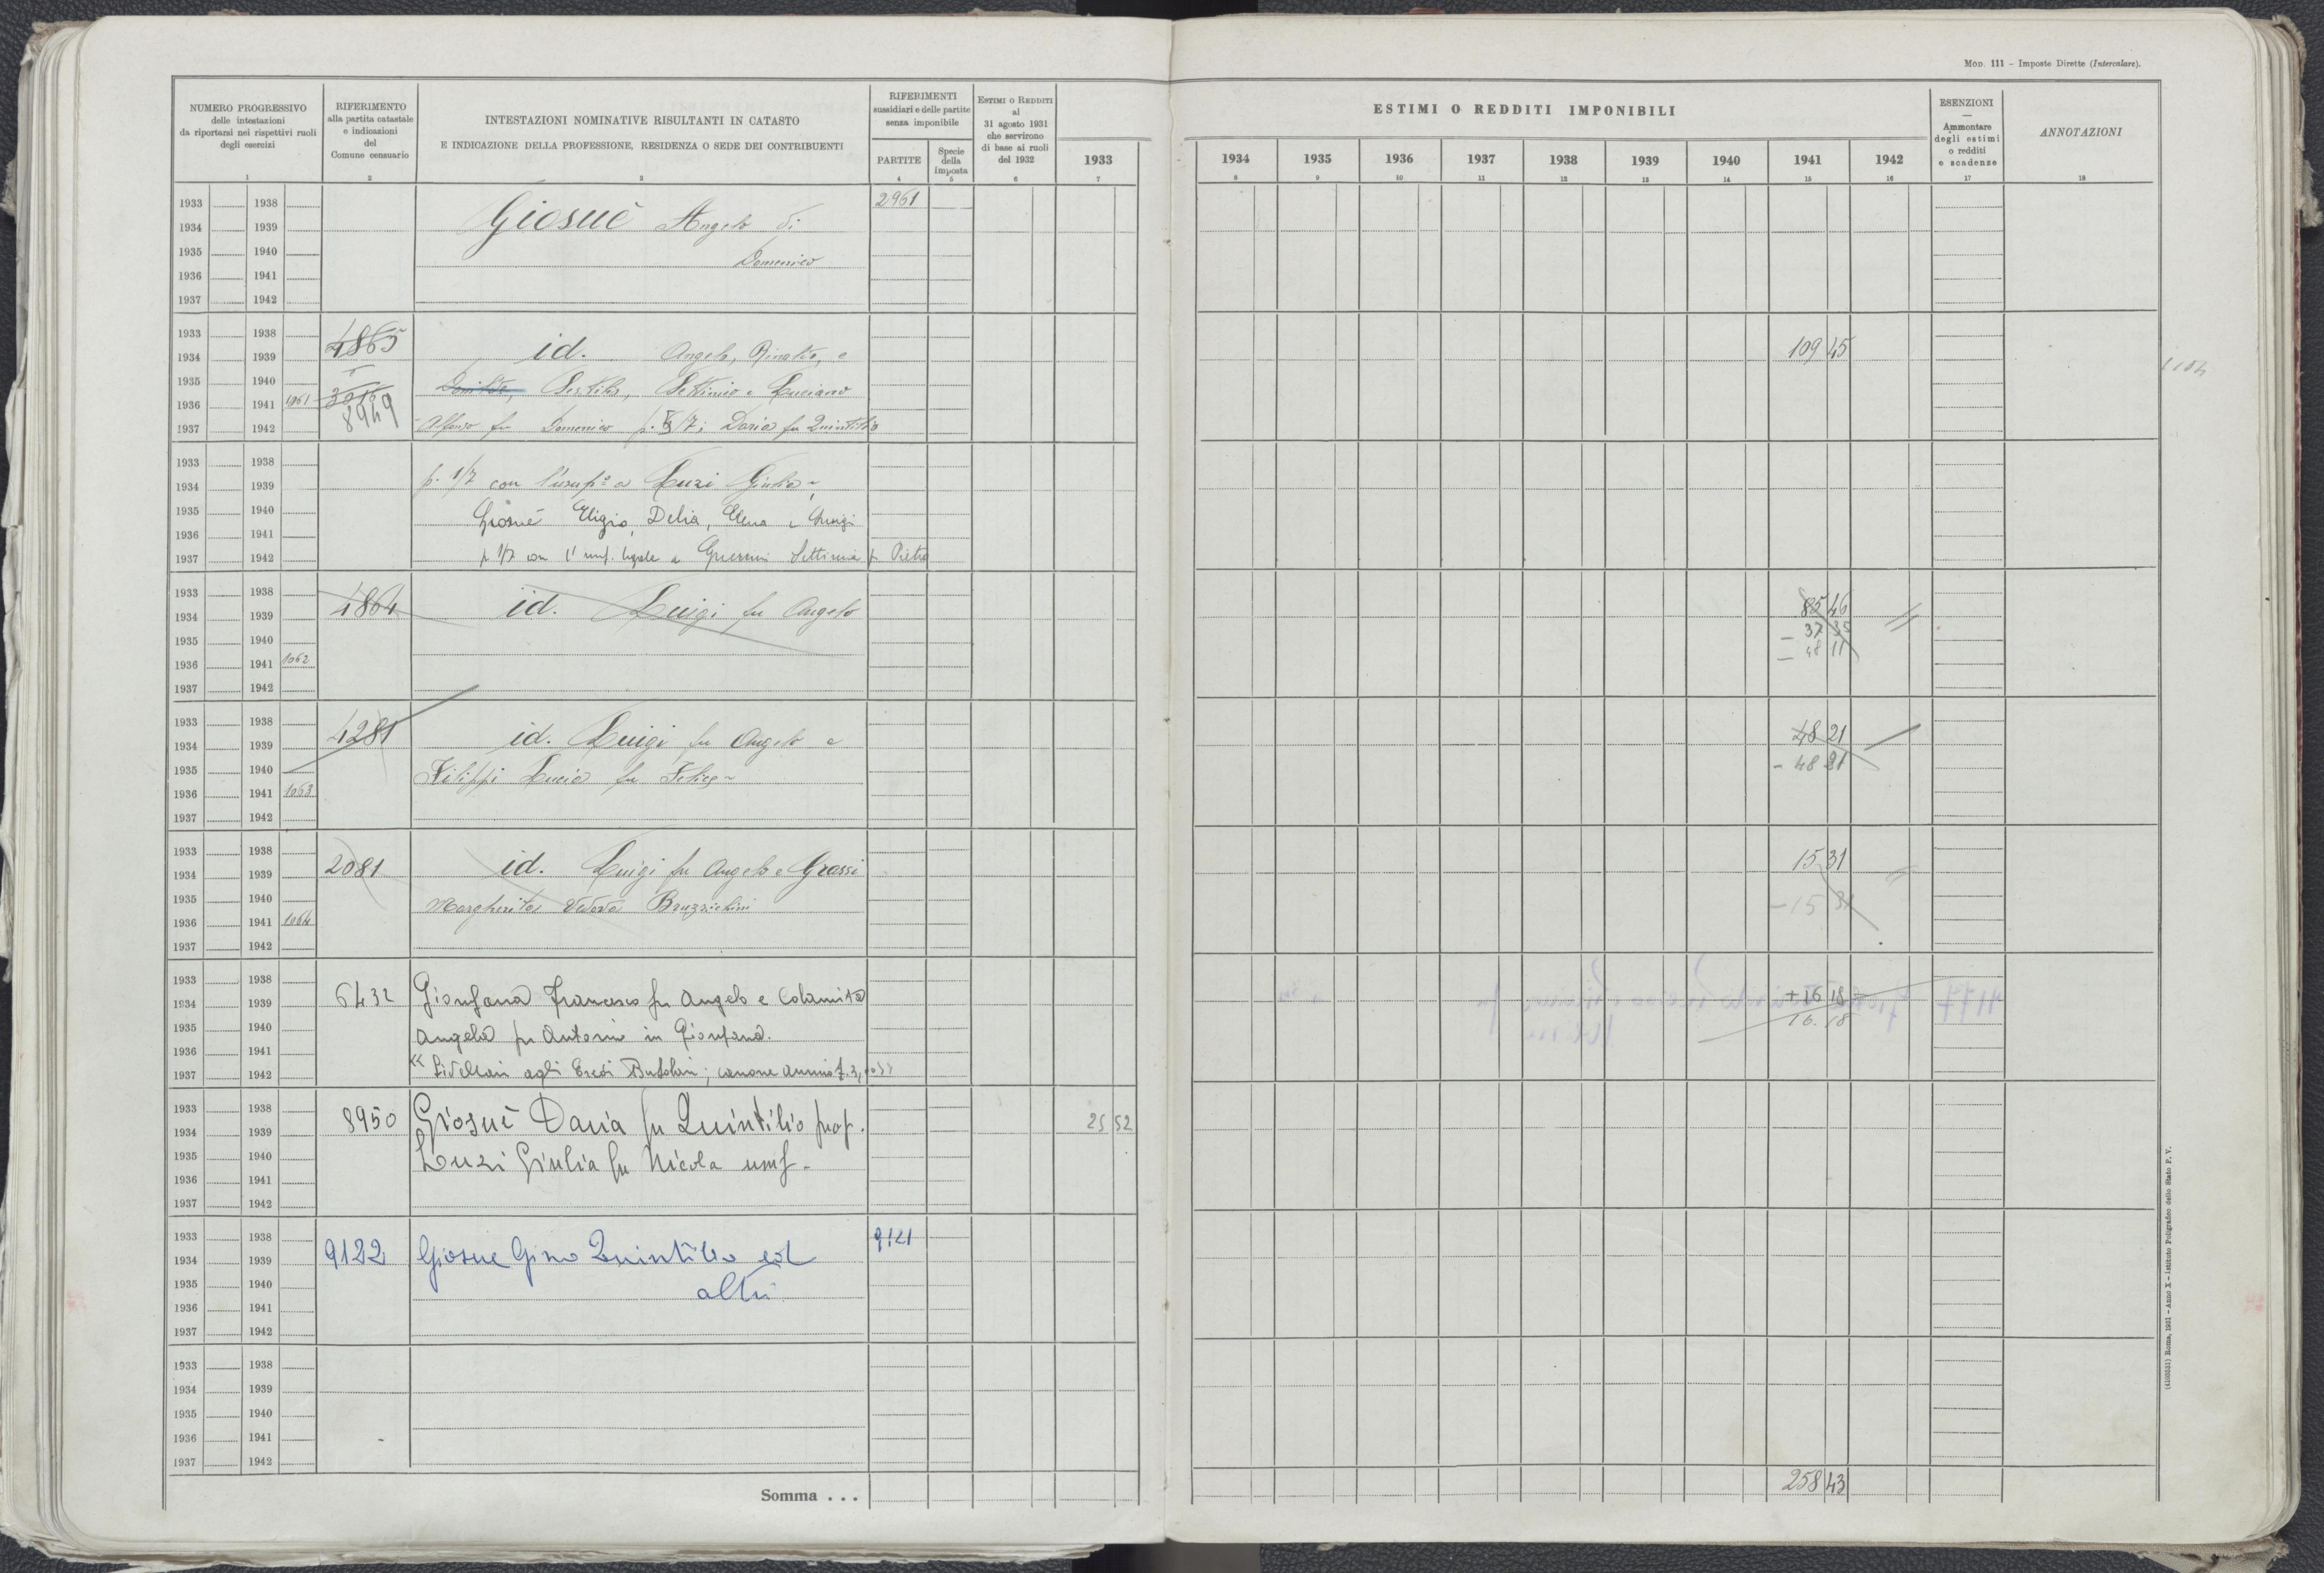 Mod. 111 - Imposte Dirette (Intercalare).
NUMERO PROGRESSIVO
delle intestazioni
da riportarsi nei rispettivi ruoli
degli esercizi
1
RIFERIMENTO
alla partita catastale
e indicazioni
del
Comune censuario
2
INTESTAZIONI NOMINATIVE RISULTANTI IN CATASTO
E INDICAZIONE DELLA PROFESSIONE, RESIDENZA O SEDE DEI CONTRIBUENTI
3
RIFERIMENTI
sussidiari e delle partite
senza imponibile
PARTITE
4
Specie
della
imposta
5
ESTIMI O REDDITI
al
31 agosto 1931
che servirono
di base ai ruoli
del 1932
6
ESTIMI O REDDITI IMPONIBILI
1933 1934 1935 1936 1937 1938 1939 1940 1941 1942
7 8 9 10 11 12 13 14 15 16
ESENZIONI
Ammontare
degli estimi
o redditi
e scadenze
17
ANNOTAZIONI
18
1933 1938 2961
1934 1939 Giosuè Angelo di
1935 1940 Domenico
1936 1941
1937 1942
1933 1938 4865
1934 1939 id. Angelo, e 109 45
1935 1940 Settimio e Luciano
1936 1941 1061
1937 1942 8949 Alfonso fu Domenico p. /7; Daria fu Quintilio
1933 1938
1934 1939 p. 1/7 con l'usuf.o a Luzi Giulia
1935 1940 Giosuè Eligio, Delia, Elena e
1936 1941
1937 1942 p 1/7 con l'usuf. legale a Settimia fu Pietro
1933 1938 85 46
1934 1939 4864 id. Luigi fu Angelo - 37 35
1935 1940 - 48 11
1936 1941 1062
1937 1942
1933 1938
1934 1939 4281 id. Luigi fu Angelo e 48 21
1935 1940 Filippi Lucia fu Felice - 48 21
1936 1941 1063
1937 1942
1933 1938
1934 1939 2081 id. Luigi fu Angelo e Grassi 15 31
1935 1940 Margherita Vedova Bruzzichini - 15 31
1936 1941 1064
1937 1942
1933 1938
1934 1939 6432 Francesco fu Angelo e + 16 18
1935 1940 Angela fu Antonio in 16.18
1936 1941
1937 1942 "Livellari agli Eredi canone annuo
1933 1938 8950 Giosuè Daria fu Quintilio prop.
1934 1939 25 52
1935 1940 Luzi Giulia fu Nicola usuf.
1936 1941
1937 1942
1933 1938 9121
1934 1939 9122 Giosue Gino Quintilio ed
1935 1940 altri
1936 1941
1937 1942
1933 1938
1934 1939
1935 1940
1936 1941
1937 1942
Somma . . . 258 43
(4105531) Roma, 1931 - Anno X - Istituto Poligrafico dello Stato P. V.